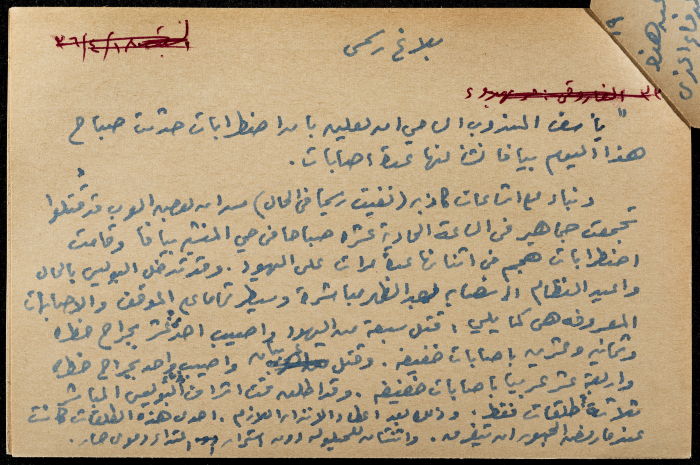 بلاغ رسمى
"يأسف المندوب السامي ان يعلن بأن اضطرابات حدثت صباح
هذا اليوم بيافا نشأ عنها عدة اصابات.
وبناء على اشاعات كاذبة (نفيت رسميا في الحال) من ان بعض العرب قد قتلوا
تجمعت جماهير في الساعة الحادية عشرة صباحا في حي المنشية بيافا وقامت
اضطرابات هجم في اثنائها عدة مرات على اليهود. وقد تدخل البوليس بالحال
واعيد النظام الى نصابه بعد الظهر مباشرة وسيطر تماما على الموقف والاصابات
المعروفة هي كما يلي: قتل سبعة من اليهود واصيب احد عشر بجراح خطرة
وثمانية وعشرين باصابات خفيفة. وقتل واصيب واحد بجراح خطرة
واربعة عشر عربيا باصابات خفيفة. وقد اطلق تحت اشراف البوليس المباشر
ثلاثة طلقات فقط. وذلك بعد اعطاء الانذار اللازم. احدى هذه الطلقات كانت
عندما رفض الجمهور ان يتفرق. واثنتان للحيلولة دون استمرار اعتداء دموي حار.